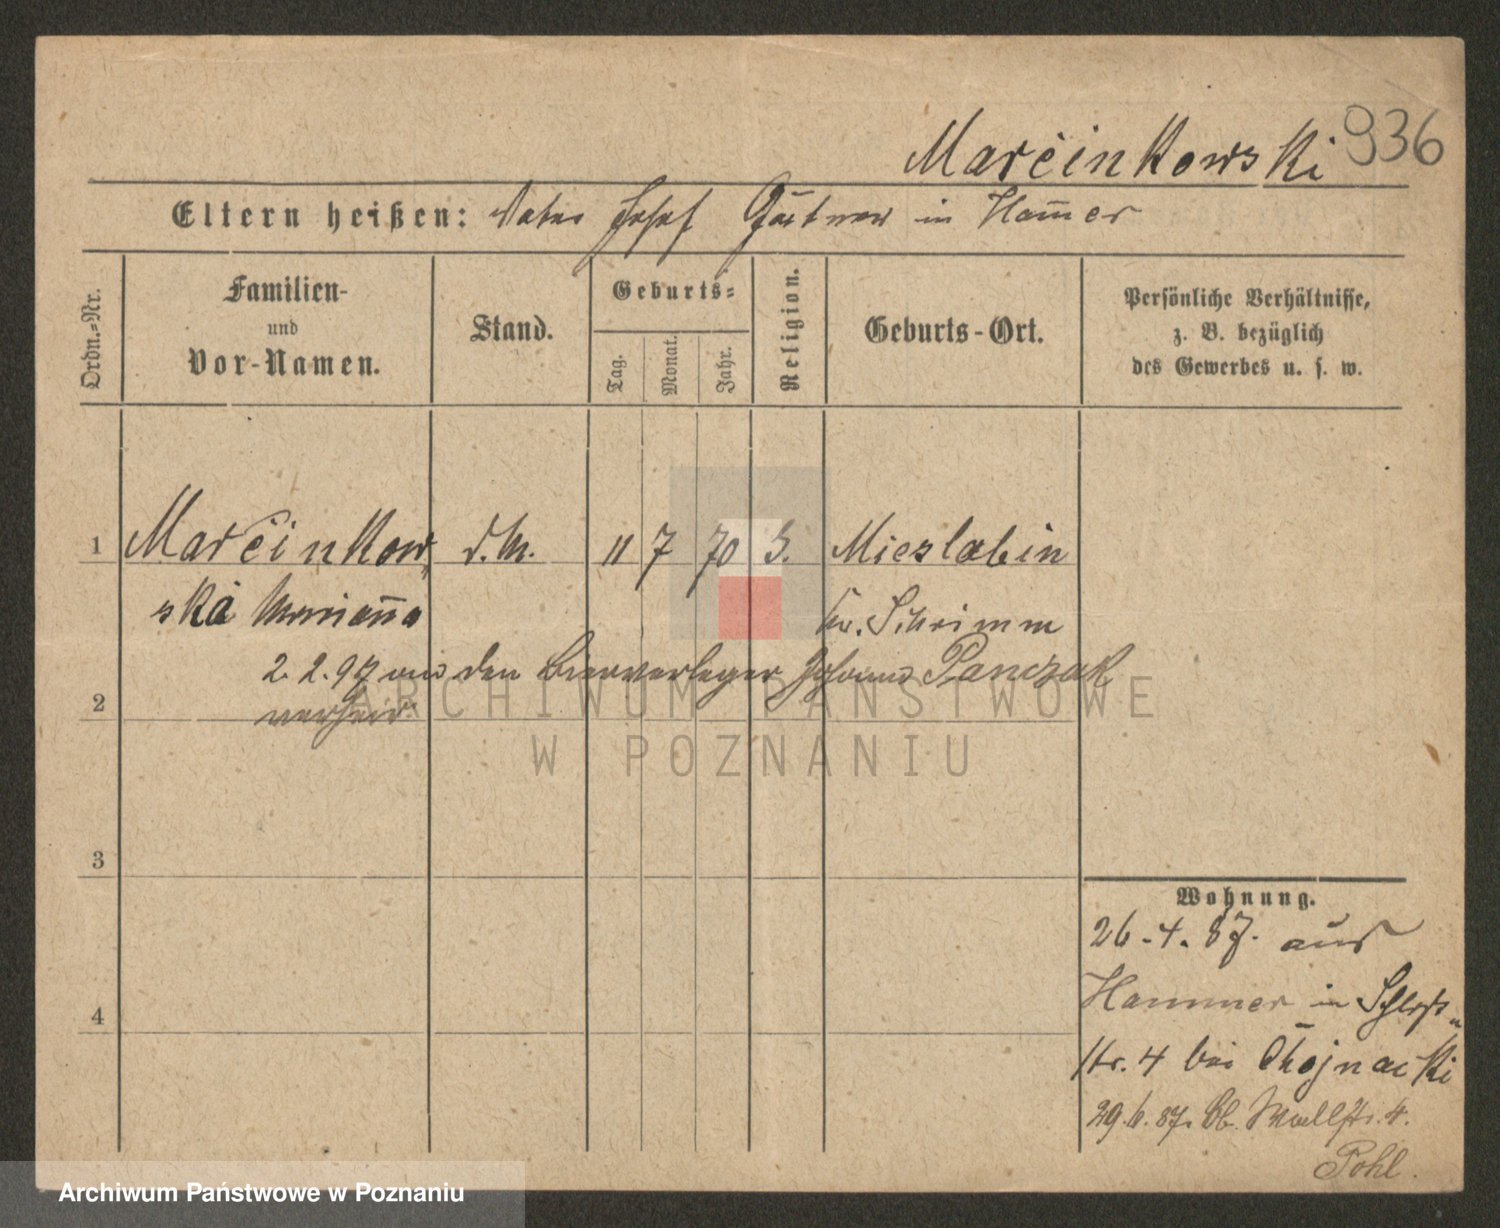 Marcinkowski 936
Eltern heißen: Vater Josef Gärtner in Ham̅er
Ordn.-Nr.
Familien-
und
Vor-Namen.
Stand.
Geburts-
Tag.
Monat.
Jahr.
Religion.
Geburts-Ort.
Persönliche Verhältnisse,
z. B. bezüglich
des Gewerbes u. s. w.
1 Marcinkow- d. M. 11 7 70 Mieszlabin
ska Marian̅a Kr. Schrimm
2. 2. 97 den Bierverleger Johann Panczak
2 verheir.
3
4
ARCHIWUM PAŃSTWOWE
W POZNANIU
Wohnung.
26.4.87. aus
Hammer in Schloß-
str. 4 bei Chojnacki
29.6.87. Wallstr. 4.
Pohl.
Archiwum Państwowe w Poznaniu